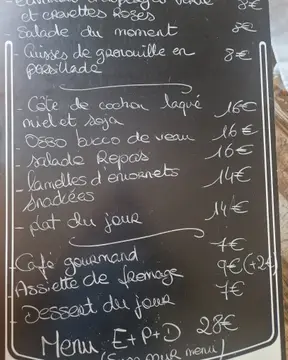 et crevettes Roses 8€
Salade du moment 8€
- Cuisses de grenouille en 8€
persillade
- Côte de cochon laqué 16€
miel et soja
- Osso bucco de veau 16€
- Salade Repas 16€
- lamelles d'encornets 14€
snackées
- plat du jour 14€
- Café gourmand 7€
- Assiette de fromage 9€ (+2€)
- Dessert du jour 7€
Menu E+P+D 28€
menu)